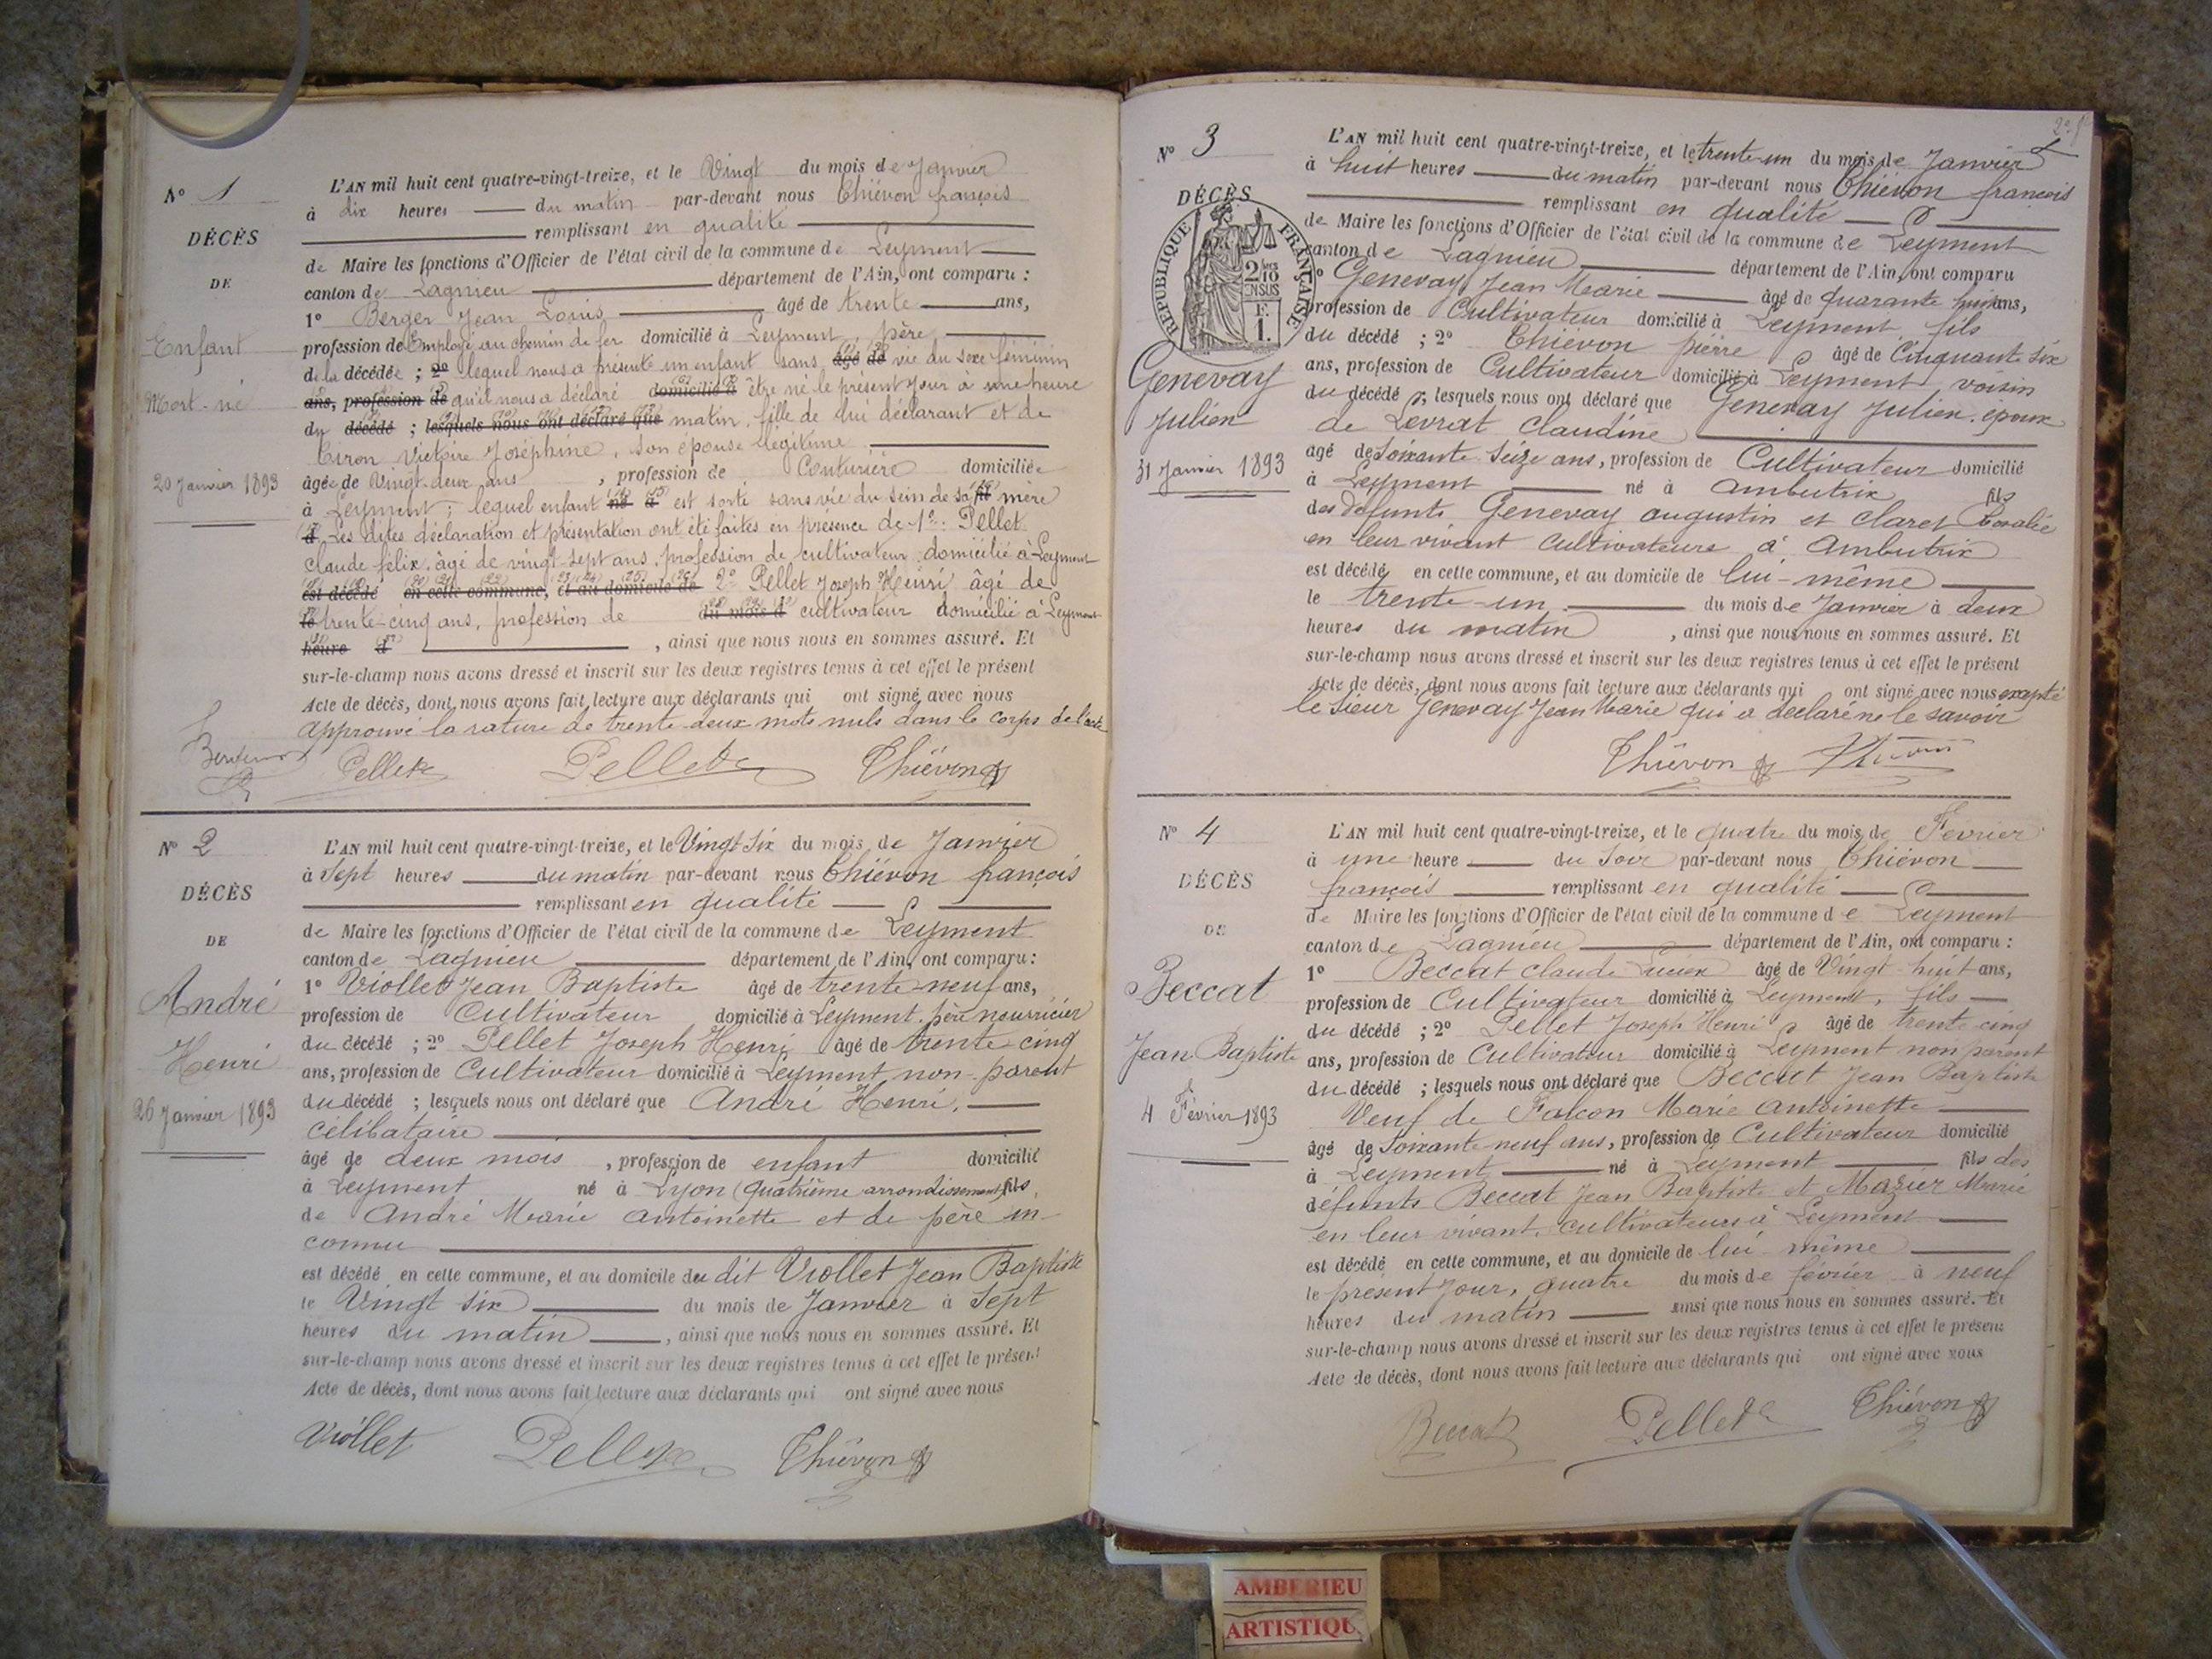 N° 1
DÉCÈS
DE
Enfant
Mort-né
20 Janvier 1893
L'AN mil huit cent quatre-vingt-treize, et le Vingt du mois de Janvier
à dix heures du matin par-devant nous Chiévon françois
remplissant en qualité
de Maire les fonctions d'Officier de l'état civil de la commune de Leyment
canton de Lagnieu département de l'Ain, ont comparu :
1° Berger Jean Louis âgé de trente ans,
profession de Employé au chemin de fer domicilié à Leyment, père
de la décédée ; 2° lequel nous a présenté un enfant sans âgé de vie du sexe féminin
ans, profession de qu'il nous a déclaré domicilié à être né le présent jour à une heure
du décédé ; lesquels nous ont déclaré que matin, fille de lui déclarant et de
Victoire Joséphine, son épouse légitime
âgée de Vingt-deux ans, profession de Couturière domiciliée
à Leyment ; lequel enfant né à est sorti sans vie du sein de sa fil mère
à Les dites déclaration et présentation ont été faites en présence de 1°: Pellet
claude félix, âgé de vingt-sept ans, profession de cultivateur, domicilié à Leyment
est décédé en cette commune, et au domicile de 2° Pellet Joseph Henri âgé de
le trente-cinq ans, profession de du mois d cultivateur domicilié à Leyment
heure d , ainsi que nous nous en sommes assuré. Et
sur-le-champ nous avons dressé et inscrit sur les deux registres tenus à cet effet le présent
Acte de décès, dont nous avons fait lecture aux déclarants qui ont signé avec nous
approuvé la rature de trente-deux mots nuls dans le corps de l'acte
Pellet Pellet Chiévon
N° 2
DÉCÈS
DE
André
Henri
26 Janvier 1893
L'AN mil huit cent quatre-vingt-treize, et le Vingt Six du mois de Janvier
à Sept heures du matin par-devant nous Chiévon françois
remplissant en qualité
de Maire les fonctions d'Officier de l'état civil de la commune de Leyment
canton de Lagnieu département de l'Ain, ont comparu :
1° Viollet Jean Baptiste âgé de trente-neuf ans,
profession de Cultivateur domicilié à Leyment, père nourricier
du décédé ; 2° Pellet Joseph Henri âgé de trente-cinq
ans, profession de Cultivateur domicilié à Leyment non-parent
du décédé ; lesquels nous ont déclaré que André Henri,
célibataire
âgé de deux mois , profession de enfant domicilié
à Leyment né à Lyon (quatrième arrondissement) fils
de André Marie antoinette et de père in-
connu
est décédé en cette commune, et au domicile du dit Viollet Jean Baptiste
le Vingt six du mois de Janvier à Sept
heures du matin , ainsi que nous nous en sommes assuré. Et
sur-le-champ nous avons dressé et inscrit sur les deux registres tenus à cet effet le présent
Acte de décès, dont nous avons fait lecture aux déclarants qui ont signé avec nous
Viollet Pellet Chiévon
N° 3
DÉCÈS
RÉPUBLIQUE FRANÇAISE
2/10 EN SUS
F. 1.
Genevay
Julien
31 Janvier 1893
L'AN mil huit cent quatre-vingt-treize, et le trente-un du mois de Janvier
à huit heures du matin par-devant nous Chiévon françois
remplissant en qualité
de Maire les fonctions d'Officier de l'état civil de la commune de Leyment
canton de Lagnieu département de l'Ain, ont comparu
1° Genevay Jean Marie âgé de quarante huit ans,
profession de Cultivateur domicilié à Leyment, fils
du décédé ; 2° Chiévon pierre âgé de Cinquante six
ans, profession de Cultivateur domicilié à Leyment, voisin
du décédé ; lesquels nous ont déclaré que Genevay Julien, époux
de Levrat Claudine
agé de Soixante-Seize ans, profession de Cultivateur domicilié
à Leyment né à Ambutrix fils
des défunts Genevay augustin et claret Rosalie
en leur vivant cultivateurs à Ambutrix
est décédé en cette commune, et au domicile de lui-même
le trente-un du mois de Janvier à deux
heures du matin , ainsi que nous nous en sommes assuré. Et
sur-le-champ nous avons dressé et inscrit sur les deux registres tenus à cet effet le présent
Acte de décès, dont nous avons fait lecture aux déclarants qui ont signé avec nous excepté
le sieur Genevay Jean Marie qui a déclaré ne le savoir
Chiévon
N° 4
DÉCÈS
DE
Beccat
Jean Baptiste
4 Février 1893
L'AN mil huit cent quatre-vingt-treize, et le quatre du mois de Février
à une heure du Soir par-devant nous Chiévon
françois remplissant en qualité
de Maire les fonctions d'Officier de l'état civil de la commune de Leyment
canton de Lagnieu département de l'Ain, ont comparu :
1° Beccat Claude Lucien âgé de Vingt-huit ans,
profession de Cultivateur domicilié à Leyment, fils
du décédé ; 2° Pellet Joseph Henri âgé de trente-cinq
ans, profession de Cultivateur domicilié à Leyment non parent
du décédé ; lesquels nous ont déclaré que Beccat Jean Baptiste
Veuf de Falcon Marie antoinette
âgé de Soixante-neuf ans, profession de Cultivateur domicilié
à Leyment né à Leyment fils des
défunts Beccat Jean Baptiste et Mazier Marie
en leur vivant, cultivateurs à Leyment
est décédé en cette commune, et au domicile de lui même
le présent jour, quatre du mois de février à neuf
heures du matin ainsi que nous nous en sommes assuré. Et
sur-le-champ nous avons dressé et inscrit sur les deux registres tenus à cet effet le présent
Acte de décès, dont nous avons fait lecture aux déclarants qui ont signé avec nous
Beccat Pellet Chiévon
AMBERIEU
ARTISTIQU